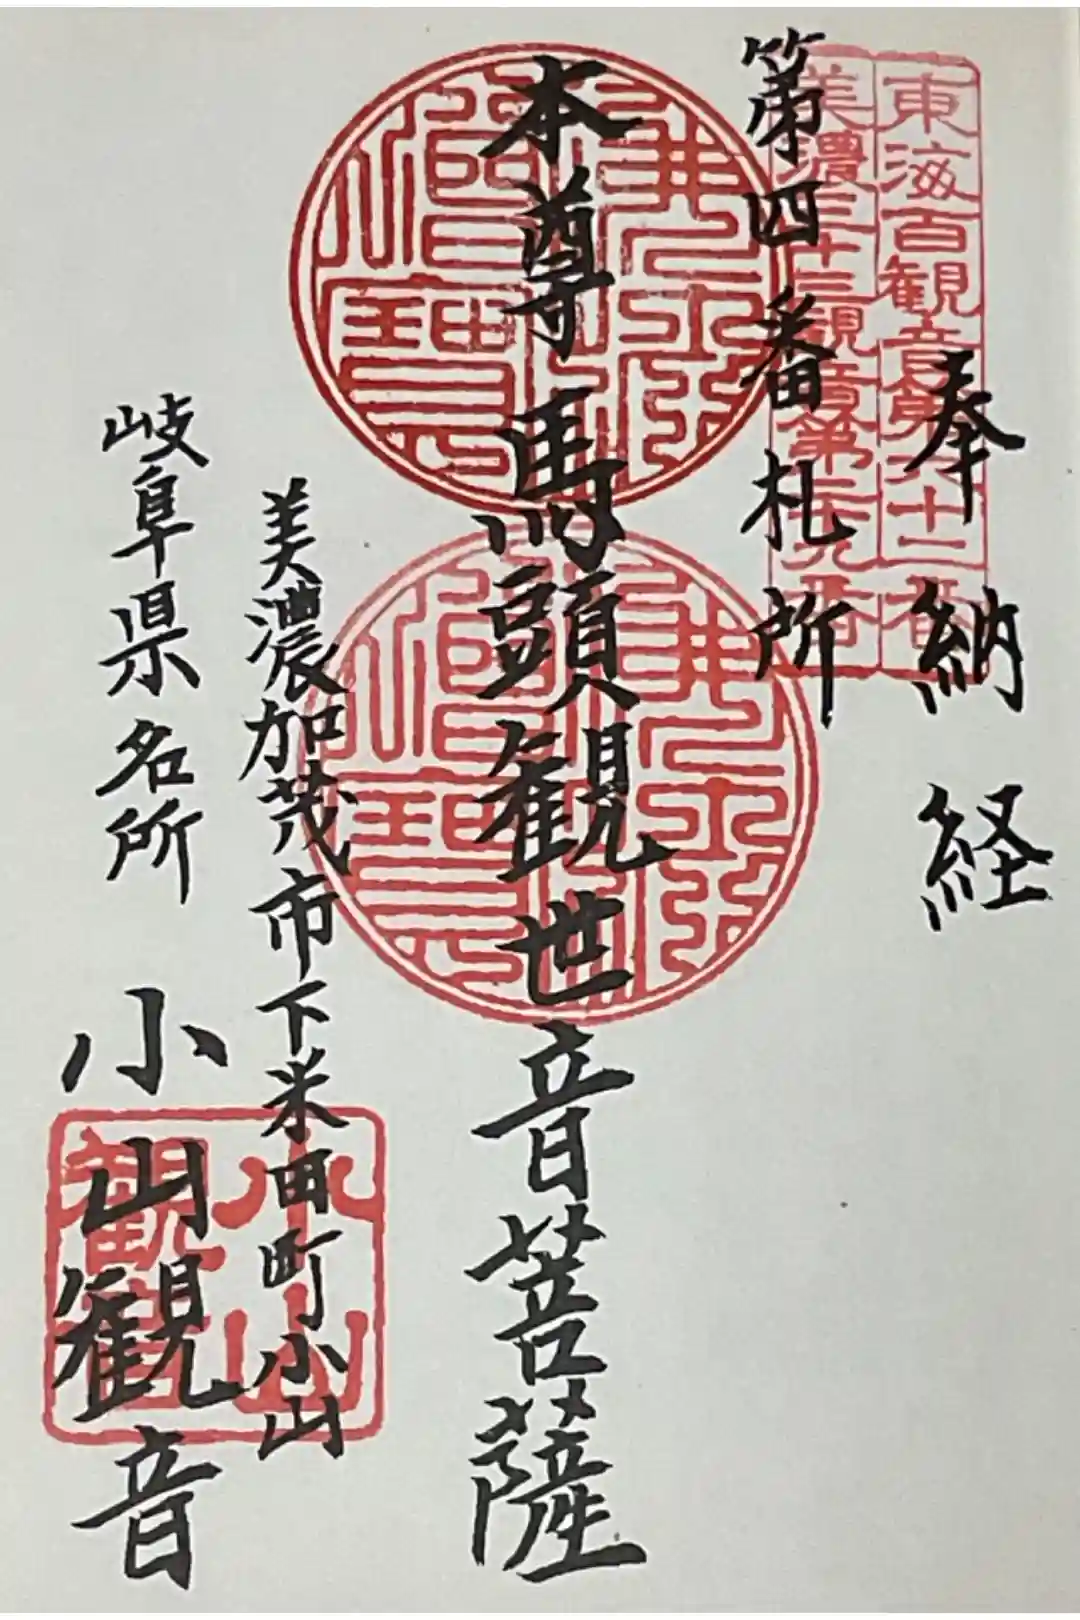 奉納経
東海百観音第六十二番
美濃三十三観音第二十九番
第四番札所
本尊馬頭観世音菩薩
佛法僧寶
佛法僧寶
美濃加茂市下米田町小山
岐阜県名所
小山観音
小山観音